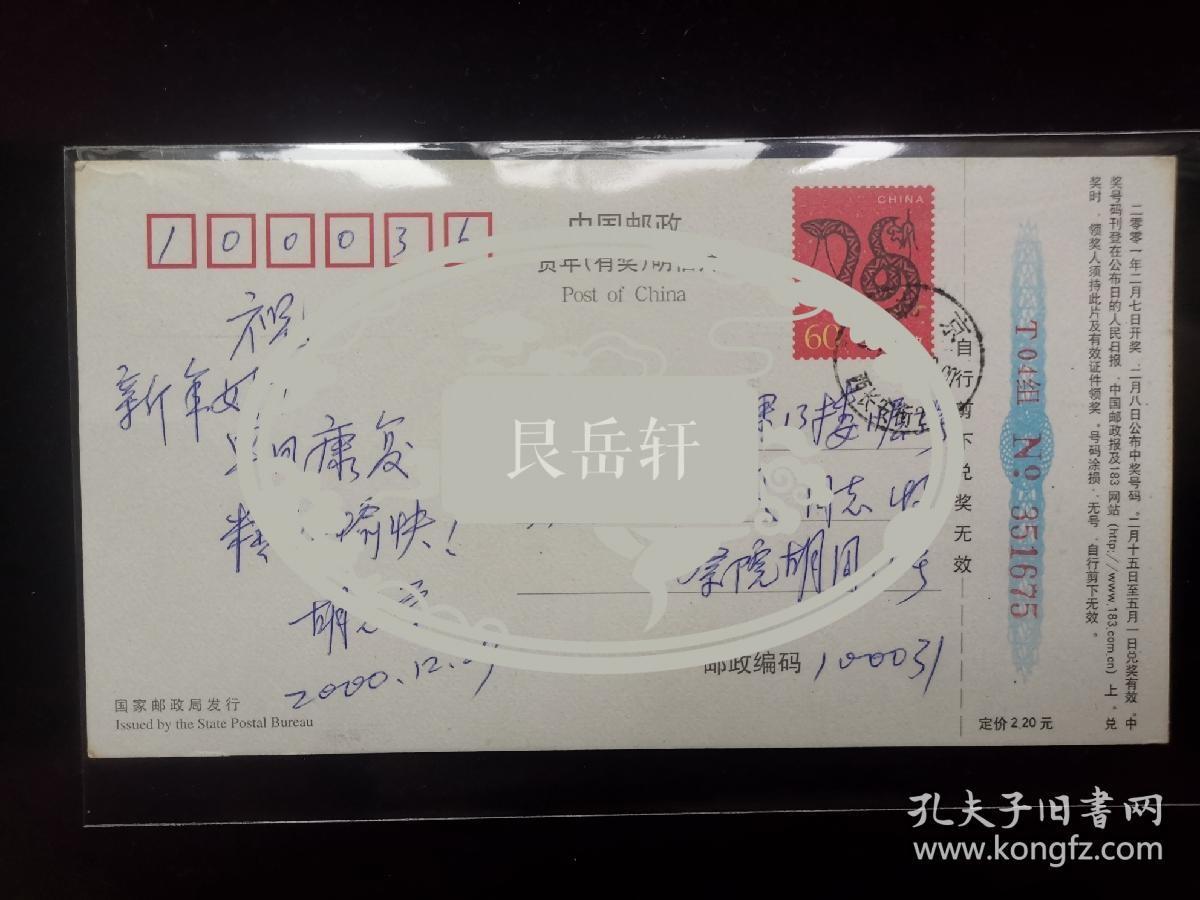 100036
中国邮政
贺年(有奖)明信片
Post of China
CHINA
60
京
祝!
新年好!
早日康复
精 愉快!
2000.12.
楼
同志收
胡
邮政编码 100031
国家邮政局发行
Issued by the State Postal Bureau
自行剪下兑奖无效
T04组 Nº 351675
定价2.20元
二零零一年二月七日开奖,二月八日公布中奖号码。二月十五日至五月一日兑奖有效。中
奖号码刊登在公布日的人民日报、中国邮政报及183网站(http://www.183.com.cn)上。兑
奖时,领奖人须持此片及有效证件领奖。号码涂损、无号、自行剪下无效。
艮岳轩
孔夫子旧書网
www.kongfz.com